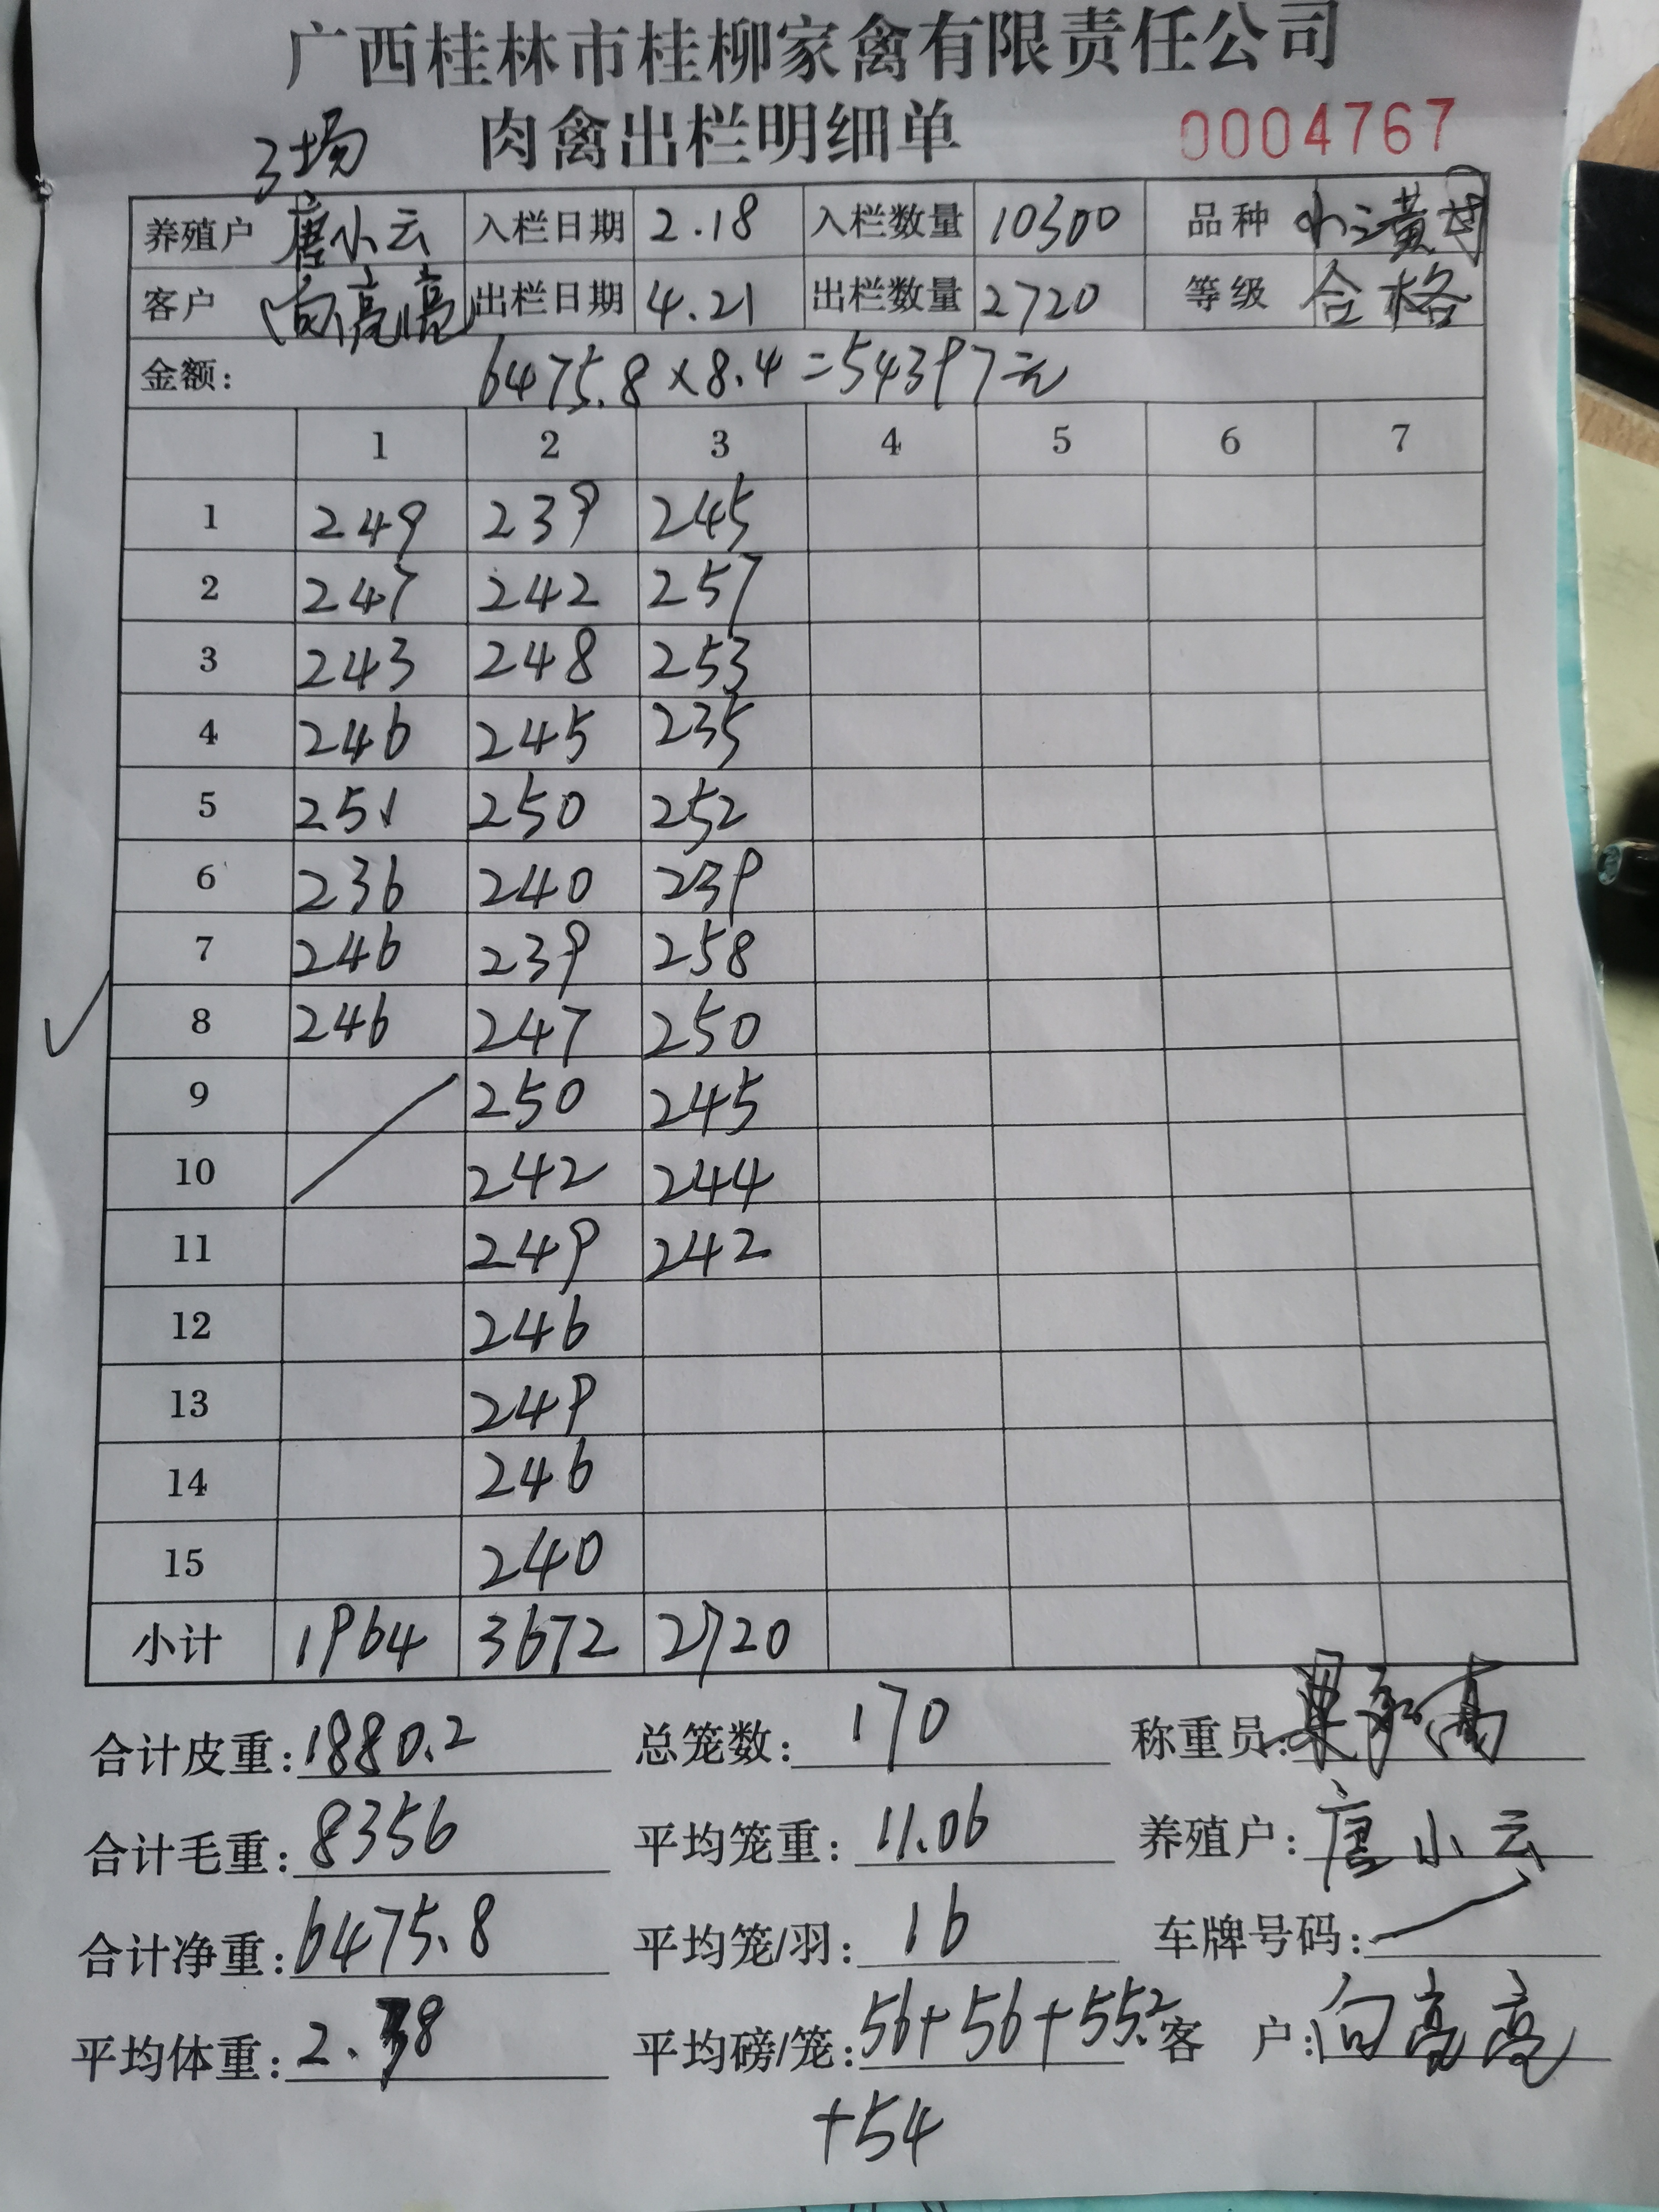 广西桂林市桂柳家禽有限责任公司
3场 肉禽出栏明细单 0004767
养殖户 唐小云 入栏日期 2.18 入栏数量 10300 品种 小三黄
客户 向亮亮 出栏日期 4.21 出栏数量 2720 等级 合格
金额: 6475.8×8.4=54397元
1 2 3 4 5 6 7
1 249 239 245
2 247 242 257
3 243 248 253
4 246 245 235
5 251 250 252
6 236 240 239
7 246 239 258
8 246 247 250
9 250 245
10 242 244
11 249 242
12 246
13 249
14 246
15 240
小计 1964 3672 2720
合计皮重: 1880.2 总笼数: 170 称重员:
合计毛重: 8356 平均笼重: 11.06 养殖户: 唐小云
合计净重: 6475.8 平均笼/羽: 16 车牌号码:
平均体重: 2.38 平均磅/笼: 56+56+55.2 客 户: 向亮亮
+54